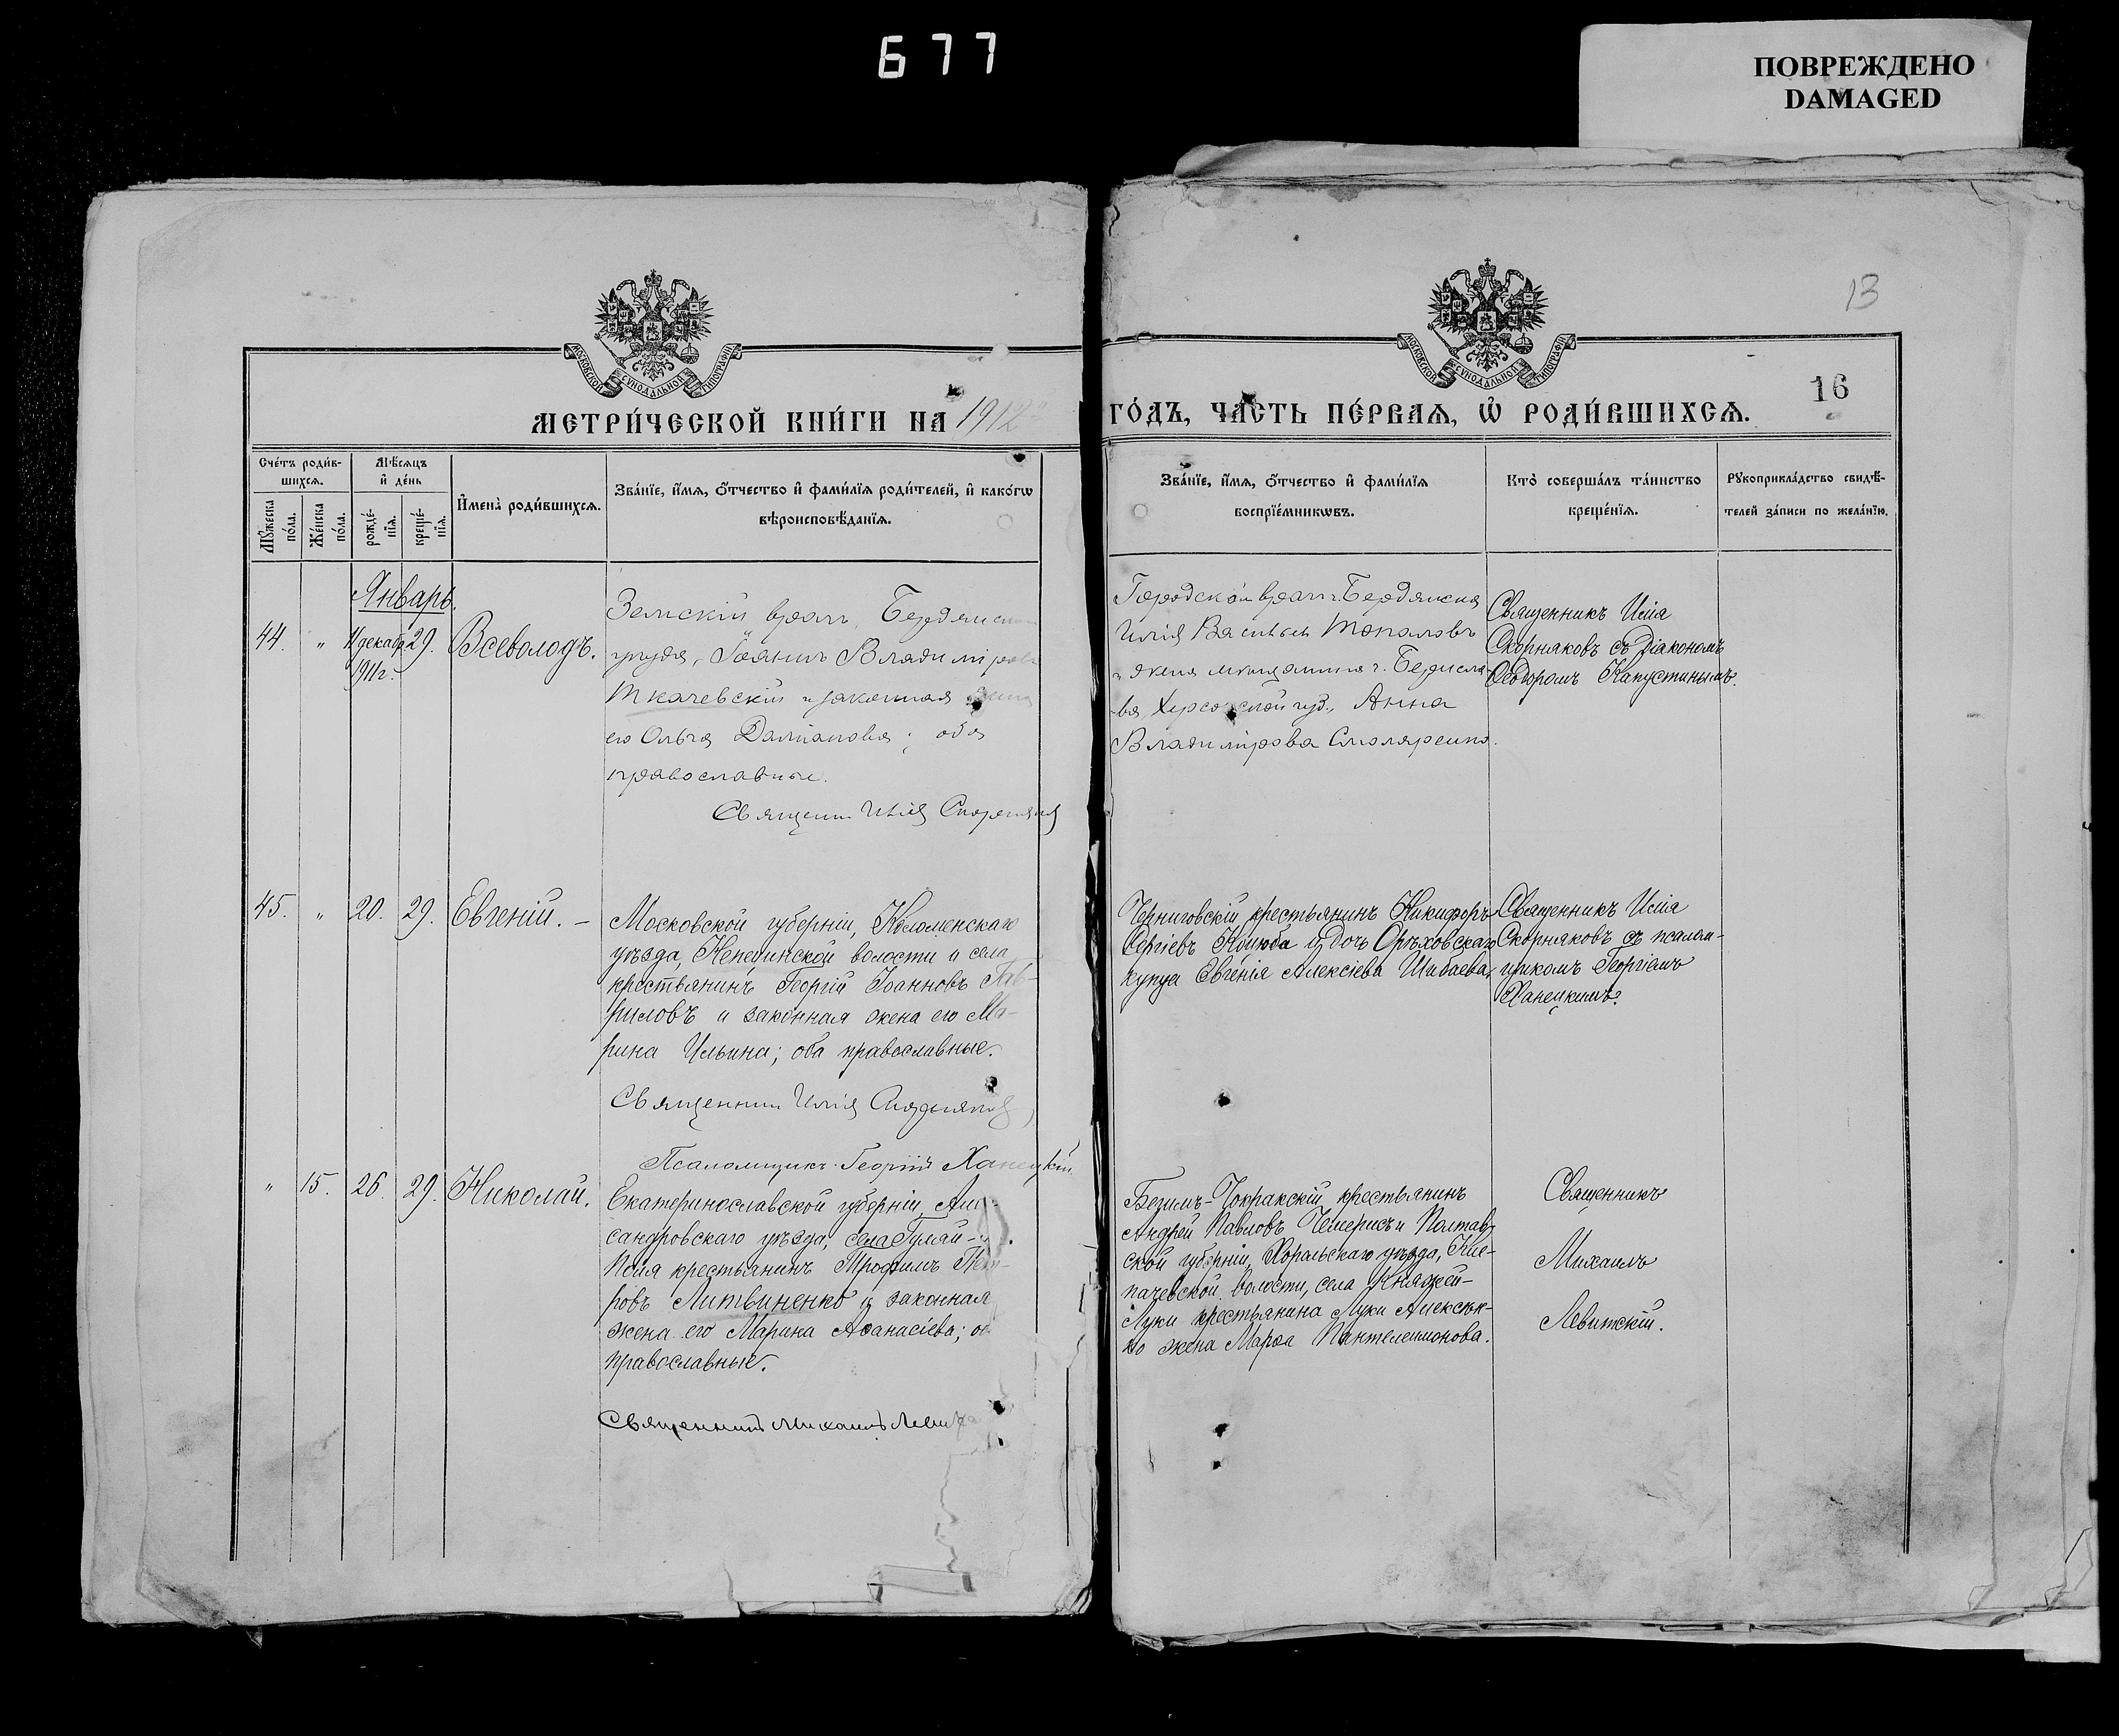 677
ПОВРЕЖДЕНО
DAMAGED
13
16
МОСКОВСКОЙ СѴНОДАЛЬНОЙ ТИПОГРАФІИ
МОСКОВСКОЙ СѴНОДАЛЬНОЙ ТИПОГРАФІИ
МЕТРИ́ЧЕСКОЙ КНИ́ГИ НА 1912
ГО́ДЪ, ЧА́СТЬ ПЕ́РВАѦ, Ѡ҆ РОДИ́ВШИХСѦ.
Сче́тъ роди́в-
шихсѧ.
Мꙋ́жеска по́ла.
Же́нска по́ла.
Мѣ́сѧцъ
и҆ де́нь
рожде́-
нїѧ.
креще́-
нїѧ.
И҆мена̀ роди́вшихсѧ.
Зва́нїе, и҆́мѧ, ѻ҆́тчество и҆ фами́лїѧ роди́телей, и҆ како́гѡ
вѣроисповѣ́данїѧ.
Зва́нїе, и҆́мѧ, ѻ҆́тчество и҆ фами́лїѧ
воспрїе́мникѡвъ.
Кто̀ соверша́лъ та́инство
креще́нїѧ.
Рꙋкоприкла́дство свидѣ́-
телей за́писи по жела́нїю.
Январь.
44. " 11 декабр 1911 г. 29. Всеволодъ.
Земскій врачъ, Бердянск
уѣзда, Іоаннъ Владиміров
Ткачевскій и законная жена
его Ольга Даміанова; оба
православные.
Священни Илія Скорняков
Городской врачъ г. Бердянска
Илія Васильев Топаловъ
и жена мѣщанина г. Берисла-
ва, Херсонской губ., Анна
Владимірова Столяренко.
Священникъ Илія
Скорняковъ съ діакономъ
Ѳеодоромъ Капустинымъ.
45. " 20. 29. Евгеній. –
Московской губерніи, Коломенскаго
уѣзда, волости и села
крестьянинъ Георгій Іоанновъ Гав-
риловъ и законная жена его Ма-
рина Ильина; оба православные.
Священник Илія Скорняков
Псаломщикъ Георгій Ханецкій
Черниговскій крестьянинъ Никифоръ
Сергіевъ и дочь Орѣховскаго
купца Евгенія Алексіева Шибаева.
Священникъ Илія
Скорняковъ съ псалом-
щикомъ Георгіемъ
Ханецкимъ.
" 15. 26. 29. Николай.
Екатеринославской губерніи, Алек-
сандровскаго уѣзда, села Гуляй-
Поля крестьянинъ Трофимъ Пет-
ровъ Литвиненко и законная
жена его Марина Аѳанасіева; об
православные.
Священникъ Михаилъ Левитск
Андрей Павловъ Чемерисъ и Полтав-
ской губерніи, Хорольскаго уѣзда,
волости, села Княжей-
Луки крестьянина Луки Алексѣен-
ко жена Марѳа Пантелеимонова.
Священникъ
Михаилъ
Левитскій.